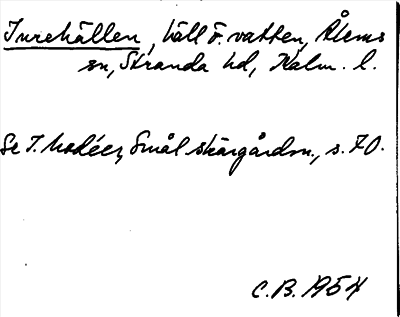 Inrehällen, häll ö. vatten, Ålems
sn, Stranda hd, Kalm. l.
Se I. Modéer, Smål skärgårdsn., s. 70.
C.B. 1954